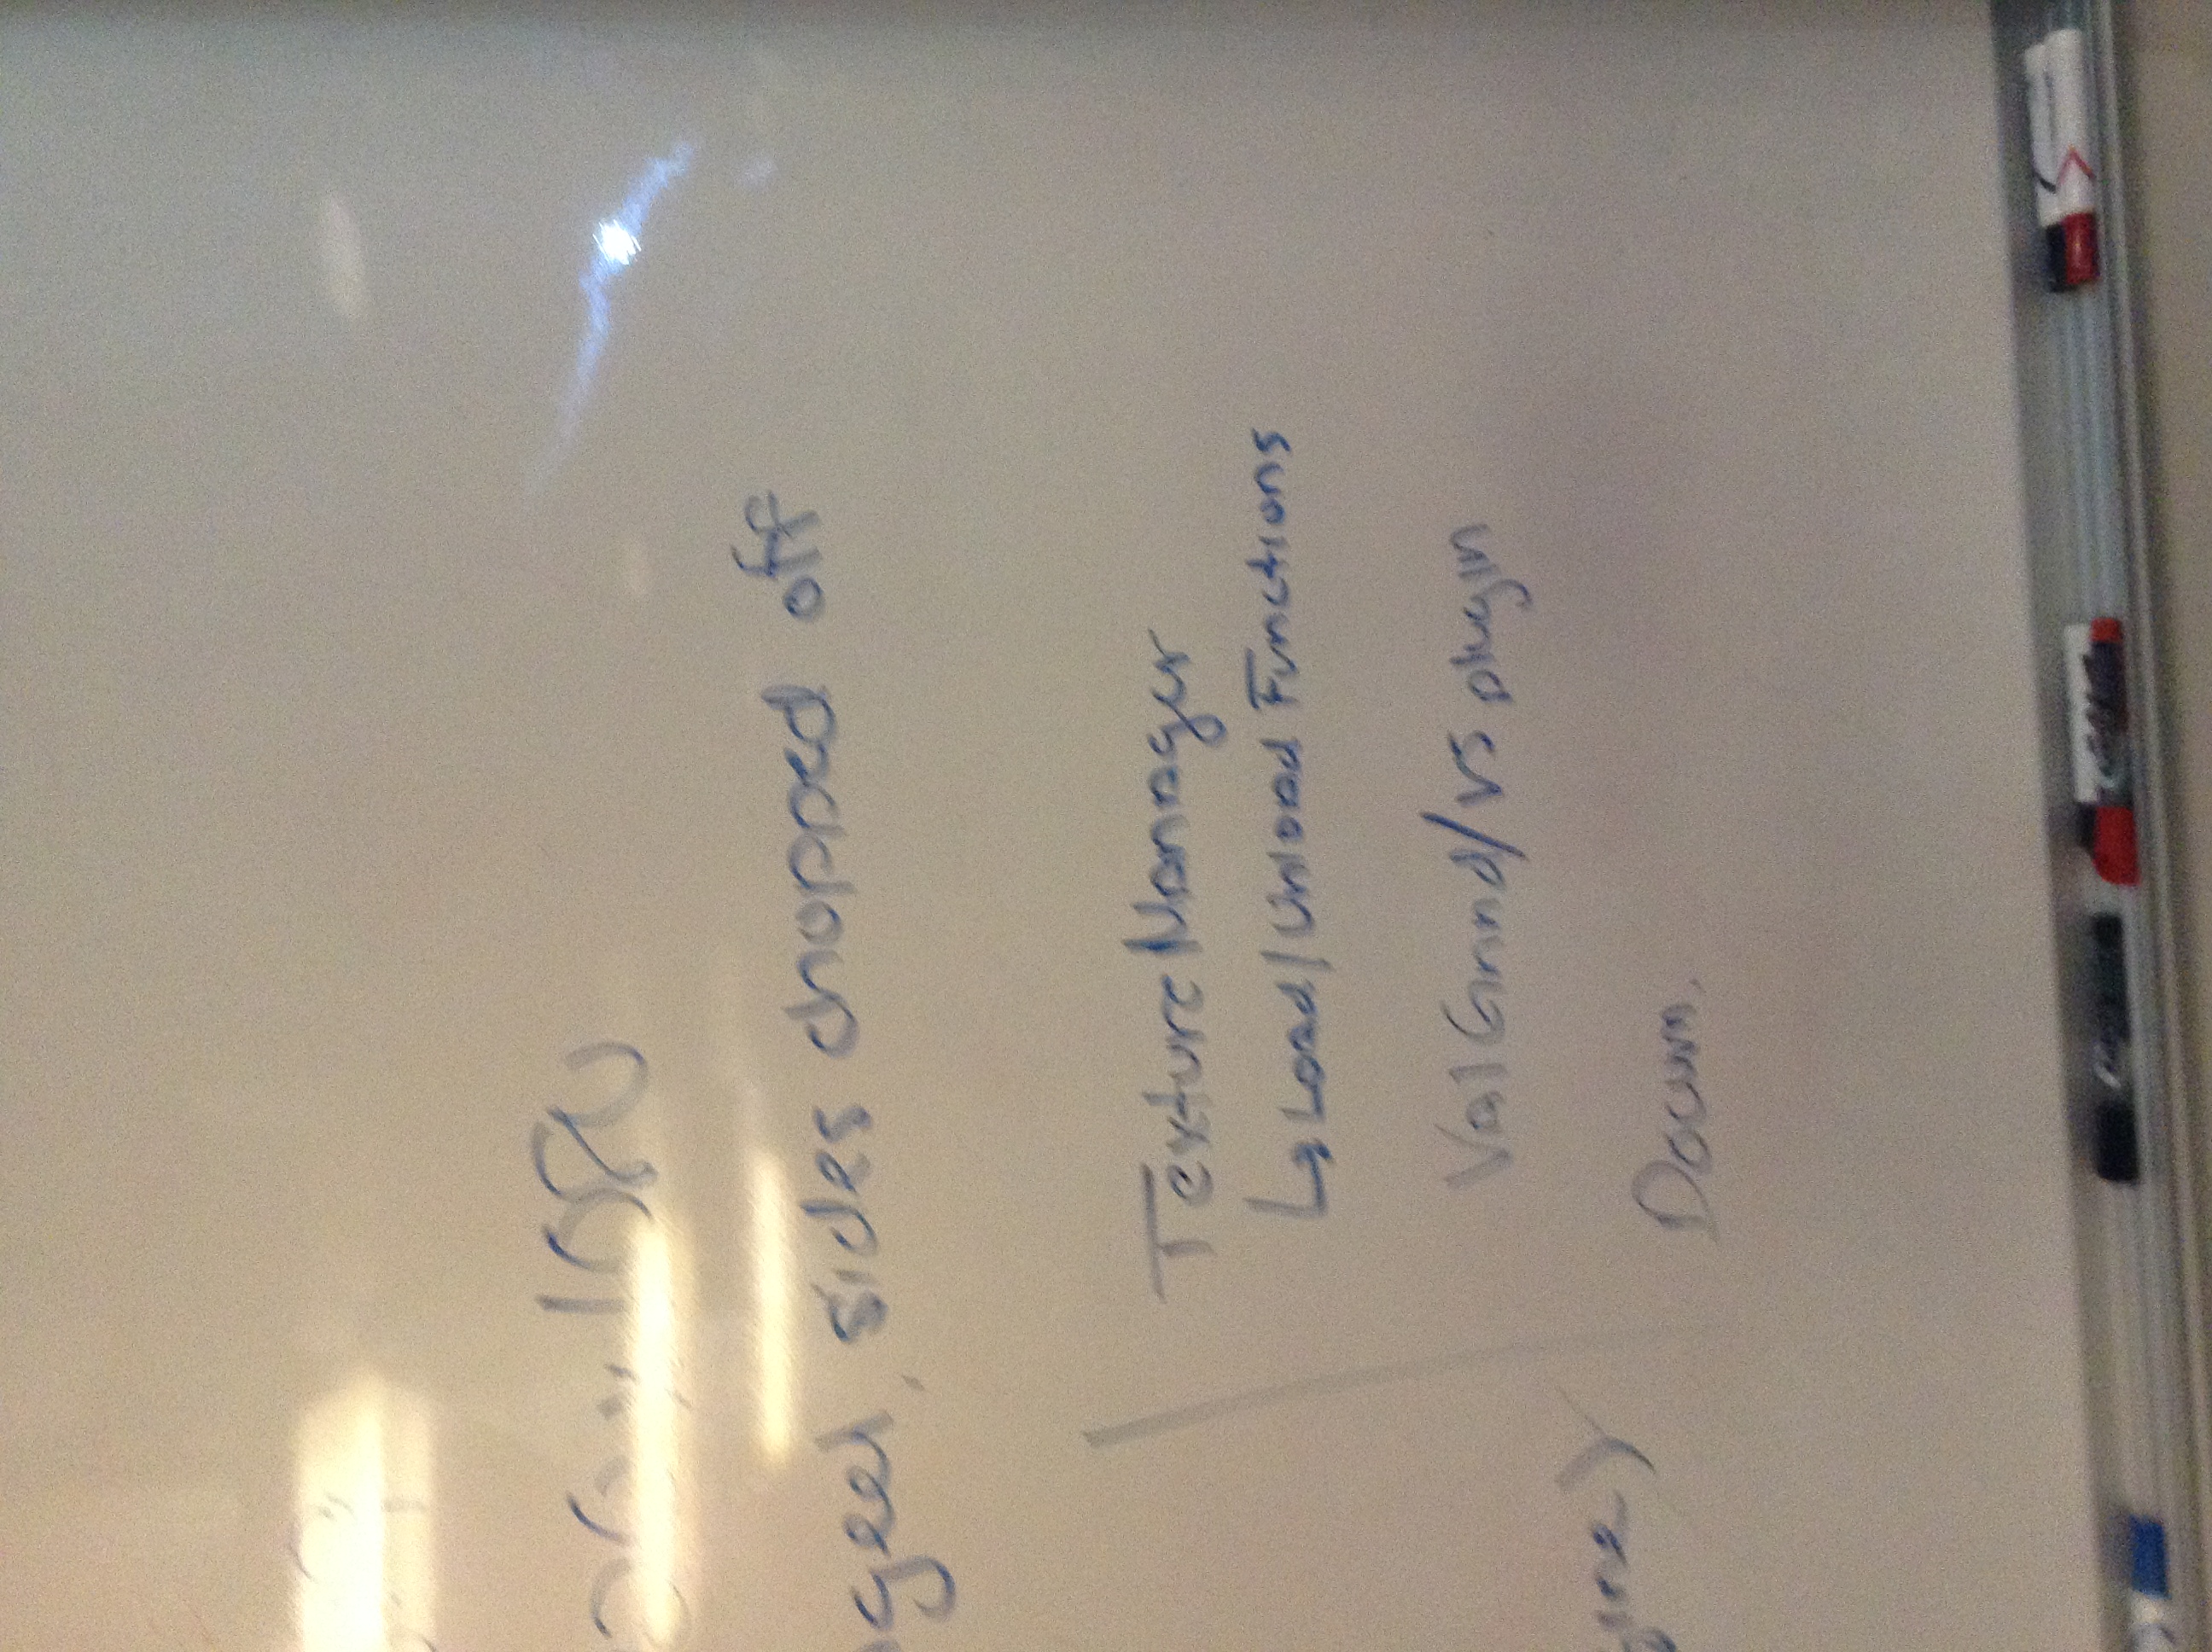 x1080
, sides chopped off
TextureManager
↳ Load/Unload Functions
ValGrind/VS plugin
Docum.